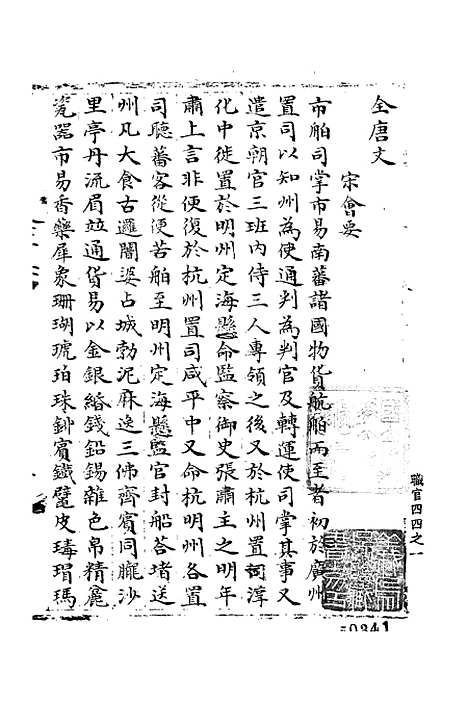 全唐文
宋會要
市舶司掌市易南蕃諸國物貨航舶而至者初於廣州
置司以知州為使通判為判官及轉運使司掌其事又
遣京朝官三班內侍三人專領之後又於杭州置司淳
化中徙置於明州定海縣命監察御史張肅主之明年
肅上言非便復於杭州置司咸平中又命杭明州各置
司聽蕃客從便若舶至明州定海縣監官封船荅堵送
州凡大食古邏闍婆占城勃泥麻逸三佛齊賓同朧沙
里亭丹流眉竝通貨易以金銀緡錢鉛錫雜色帛精麄
瓷器市易香藥犀象珊瑚琥珀珠鉢賓鐵鼊皮瑇瑁瑪
職官四四之一